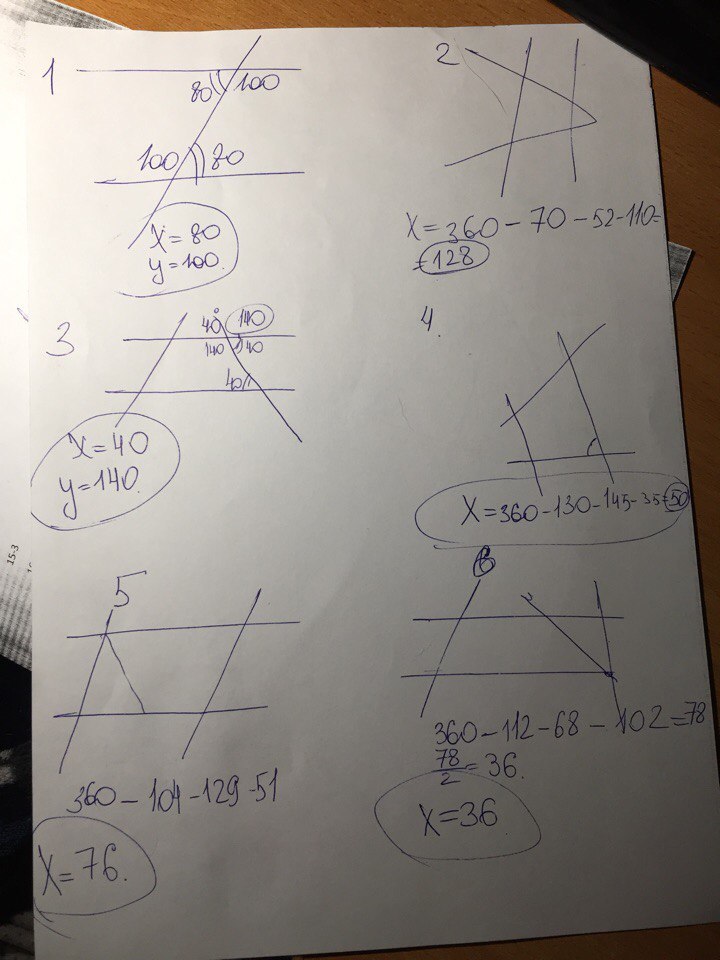 1
80 100
100 80
X=80
y=100.
2
X=360-70-52-110=
=128
3
40° 140
140 40
40
X=40
y=140.
4.
X=360-130-145-35=50
5
360-104-129-51
X=76.
6
360-112-68-102=78
78/2=36.
X=36
15-3